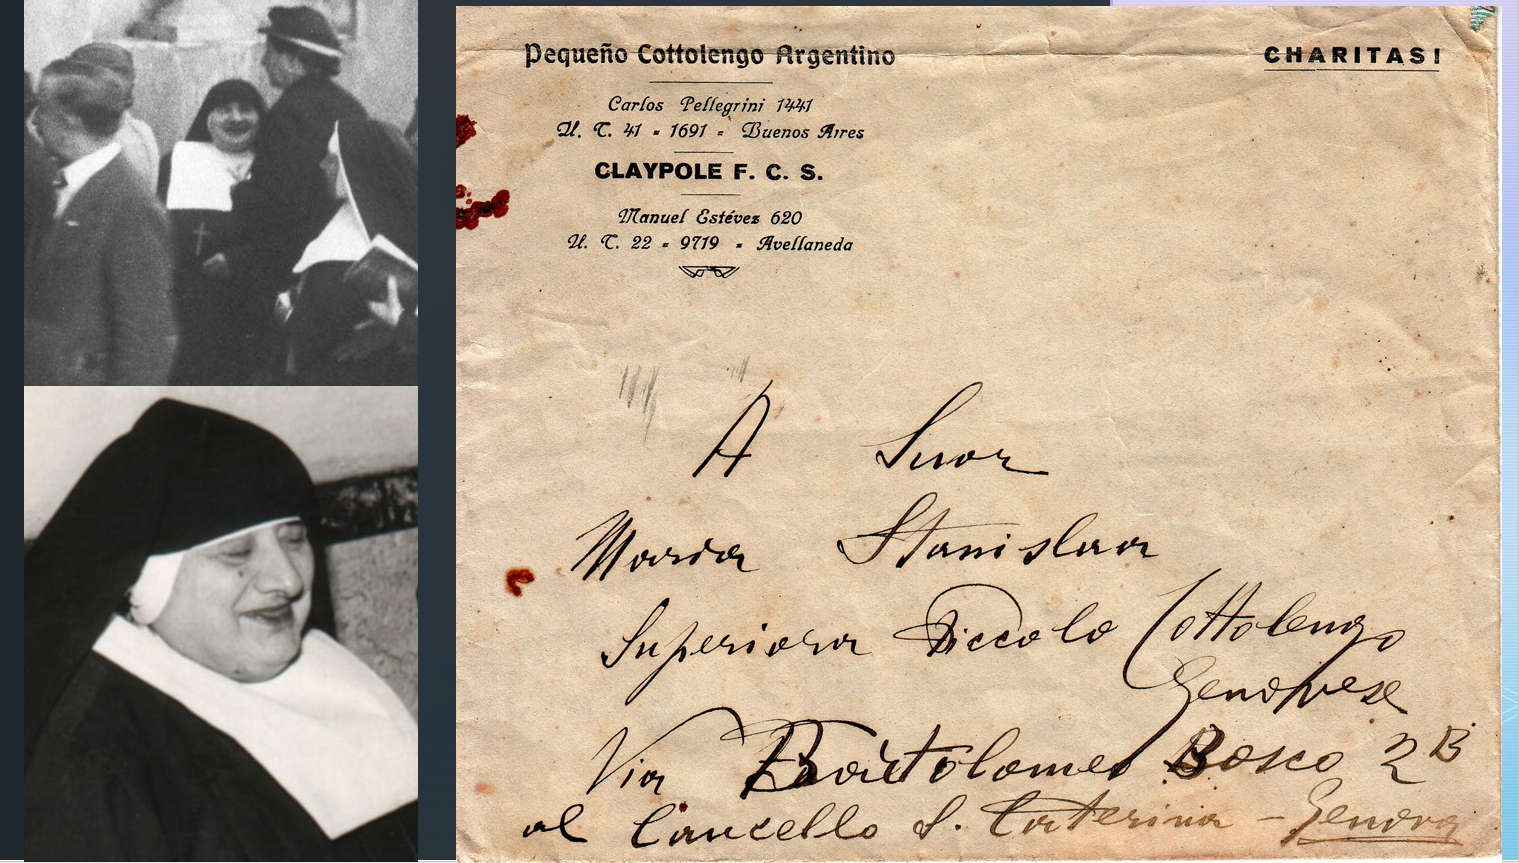 Pequeño Cottolengo Argentino
CHARITAS!
Carlos Pellegrini 1441
U. T. 41 - 1691 - Buenos Aires
CLAYPOLE F. C. S.
Manuel Estévez 620
U. T. 22 - 9719 - Avellaneda
A Suor
Maria Stanislaa
Superiora Piccolo Cottolengo
Genovese
Via Bartolomeo Bosco 2 B
al Cancello S. Caterina - Genova